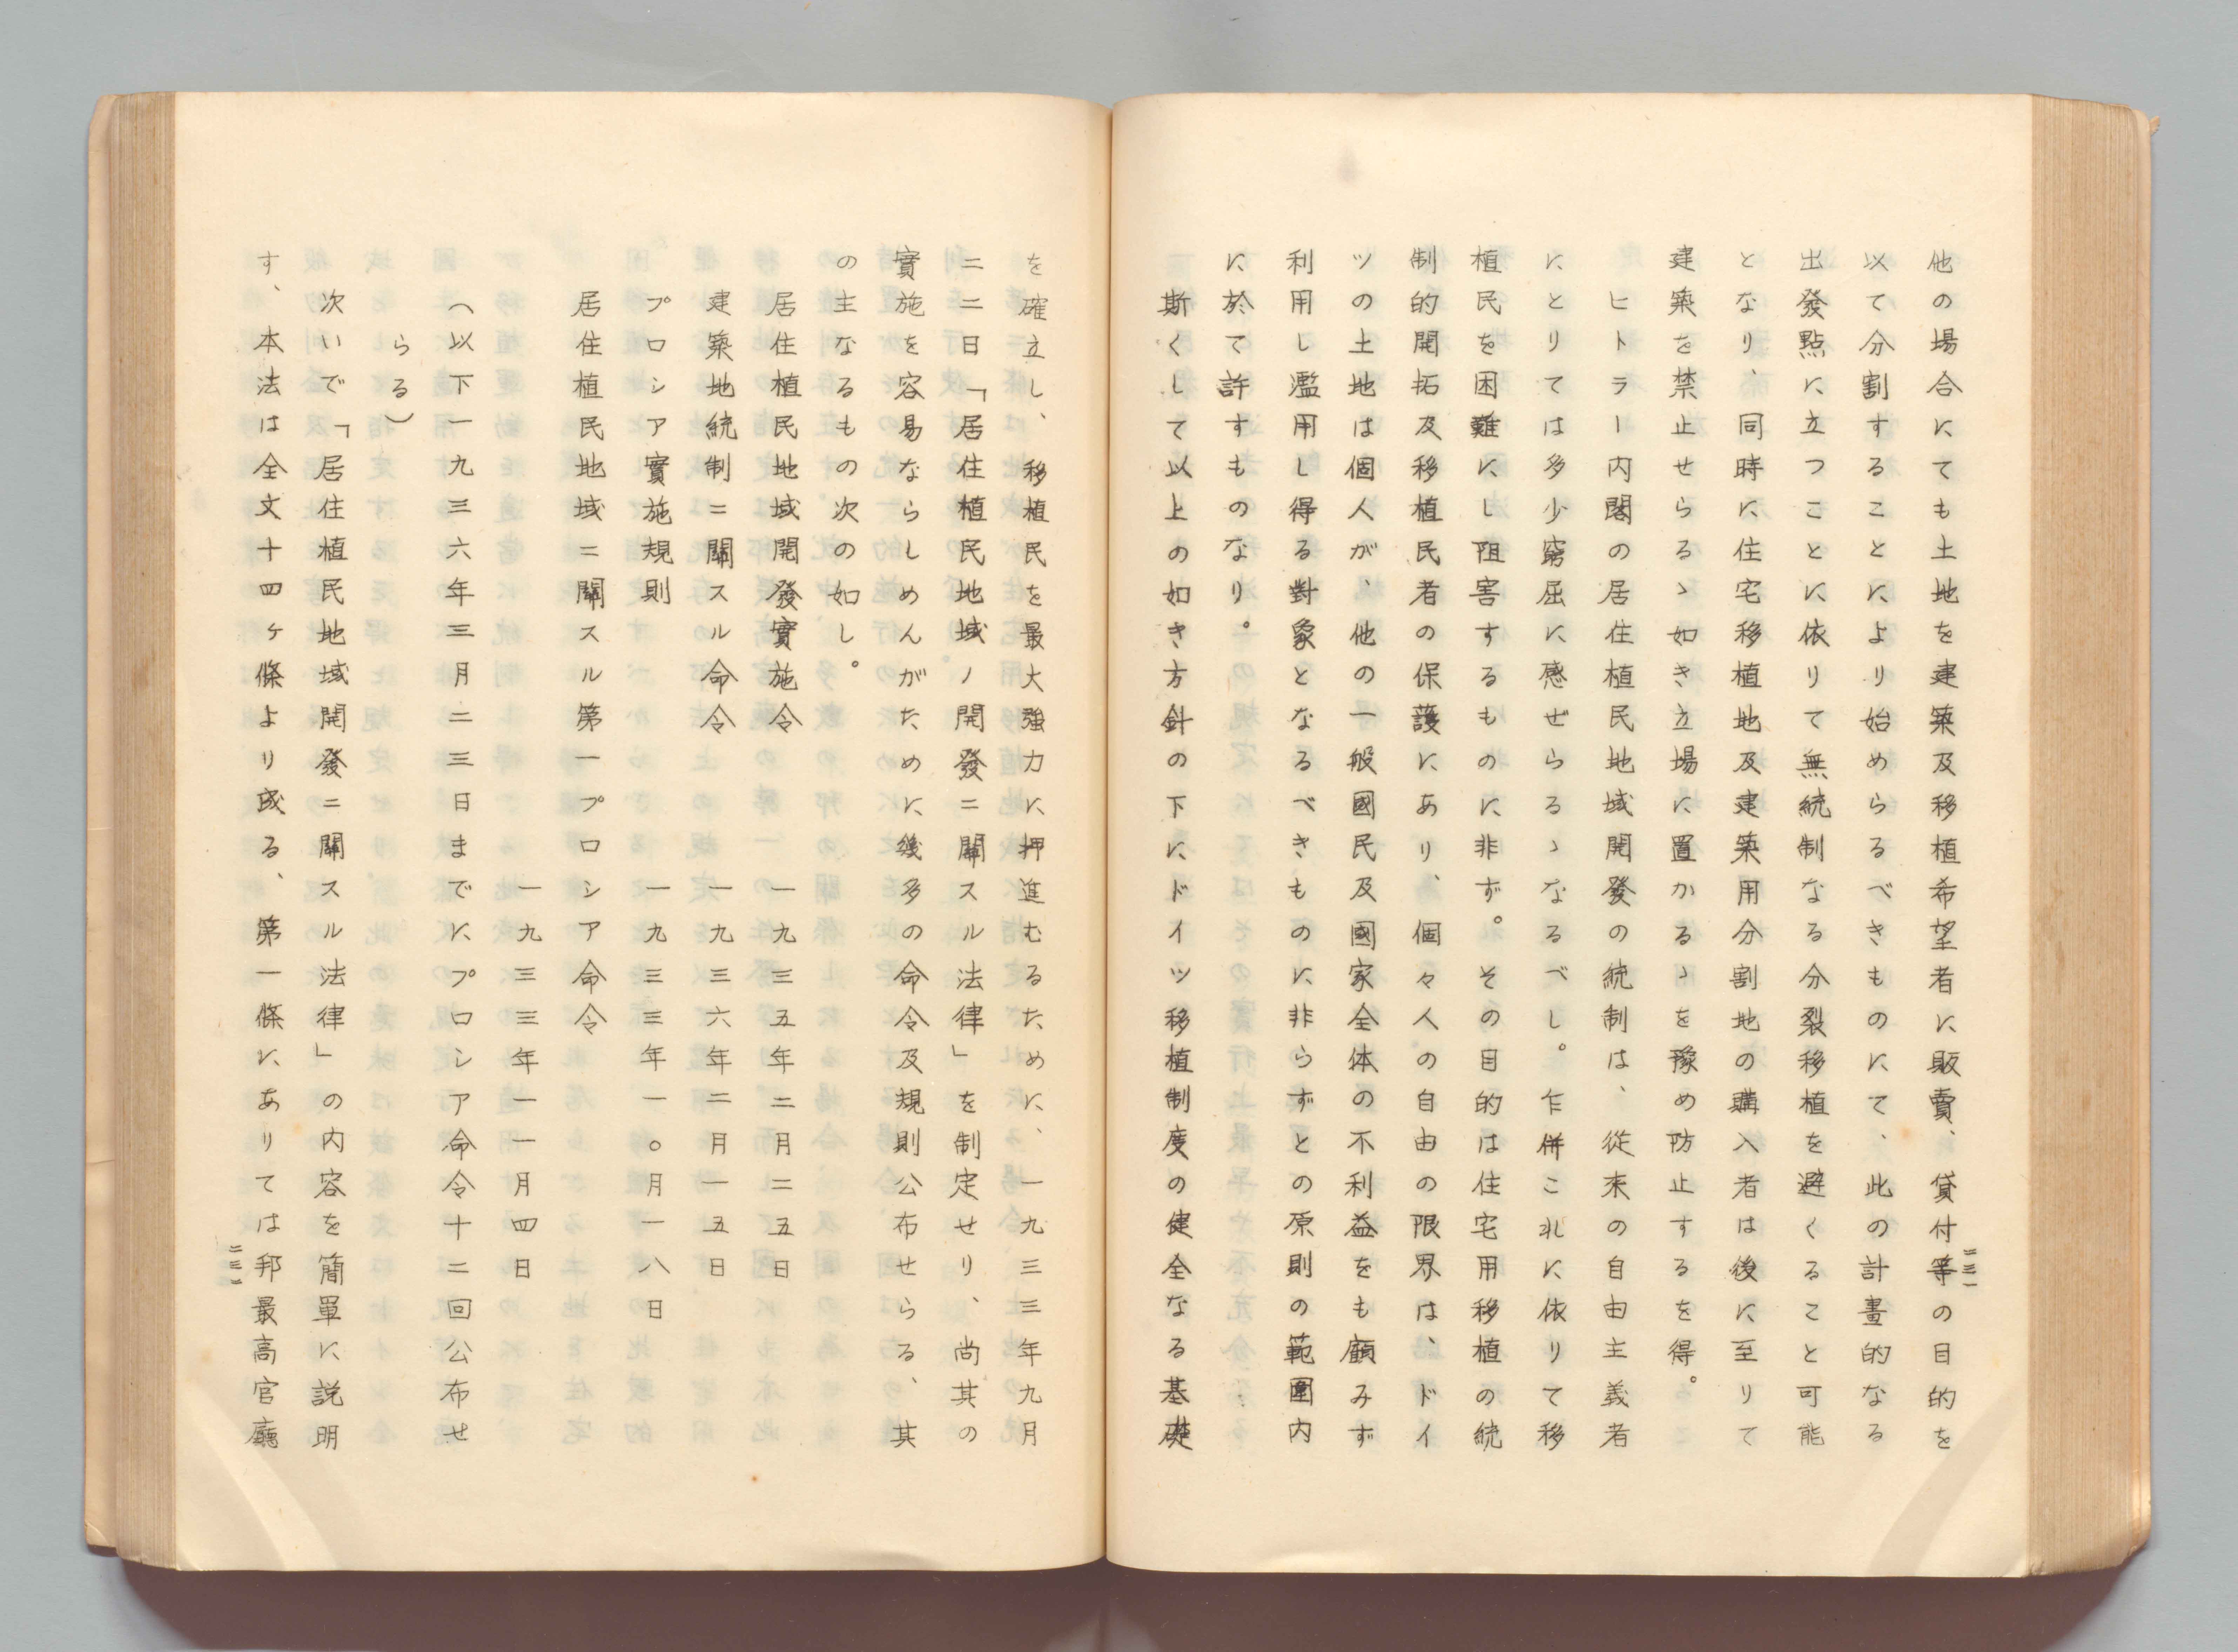 他の場合にても土地を建築及移植希望者に販賣、貸付等の目的を
以て分割することにより始めらるべきものにて、此の計畫的なる
出發點に立つことに依りて無統制なる分裂移植を避くること可能
となり、同時に住宅移植地及建築用分割地の購入者は後に至りて
建築を禁止せらるゝ如き立場に置かるゝを豫め防止するを得。
ヒトラー内閣の居住植民地域開發の統制は、從來の自由主義者
にとりては多少窮屈に感ぜらるゝなるべし。乍併これに依りて移
植民を困難にし阻害するものに非ず。その目的は住宅用移植の統
制的開拓及移植民者の保護にあり、個々人の自由の限界は、ドイ
ツの土地は個人が、他の一般國民及國家全体の不利益をも顧みず
利用し濫用し得る對象となるべきものに非らずとの原則の範圍内
に於て許すものなり。
斯くして以上の如き方針の下にドイツ移植制度の健全なる基礎
二三一
を確立し、移植民を最大強力に押進むるために、一九三三年九月
二二日「居住植民地域ノ開發ニ關スル法律」を制定せり、尚其の
實施を容易ならしめんがために幾多の命令及規則公布せらる、其
の主なるもの次の如し。
居住植民地域開發實施令 一九三五年二月二五日
建築地統制ニ關スル命令 一九三六年二月一五日
プロシア實施規則 一九三三年一〇月一八日
居住植民地域ニ關スル第一プロシア命令
一九三三年一一月四日
（以下一九三六年三月二三日までにプロシア命令十二回公布せ
らる）
次いで「居住植民地域開發ニ關スル法律」の内容を簡單に説明
す、本法は全文十四ヶ條より成る、第一條にありては邦最高官廳
二三二